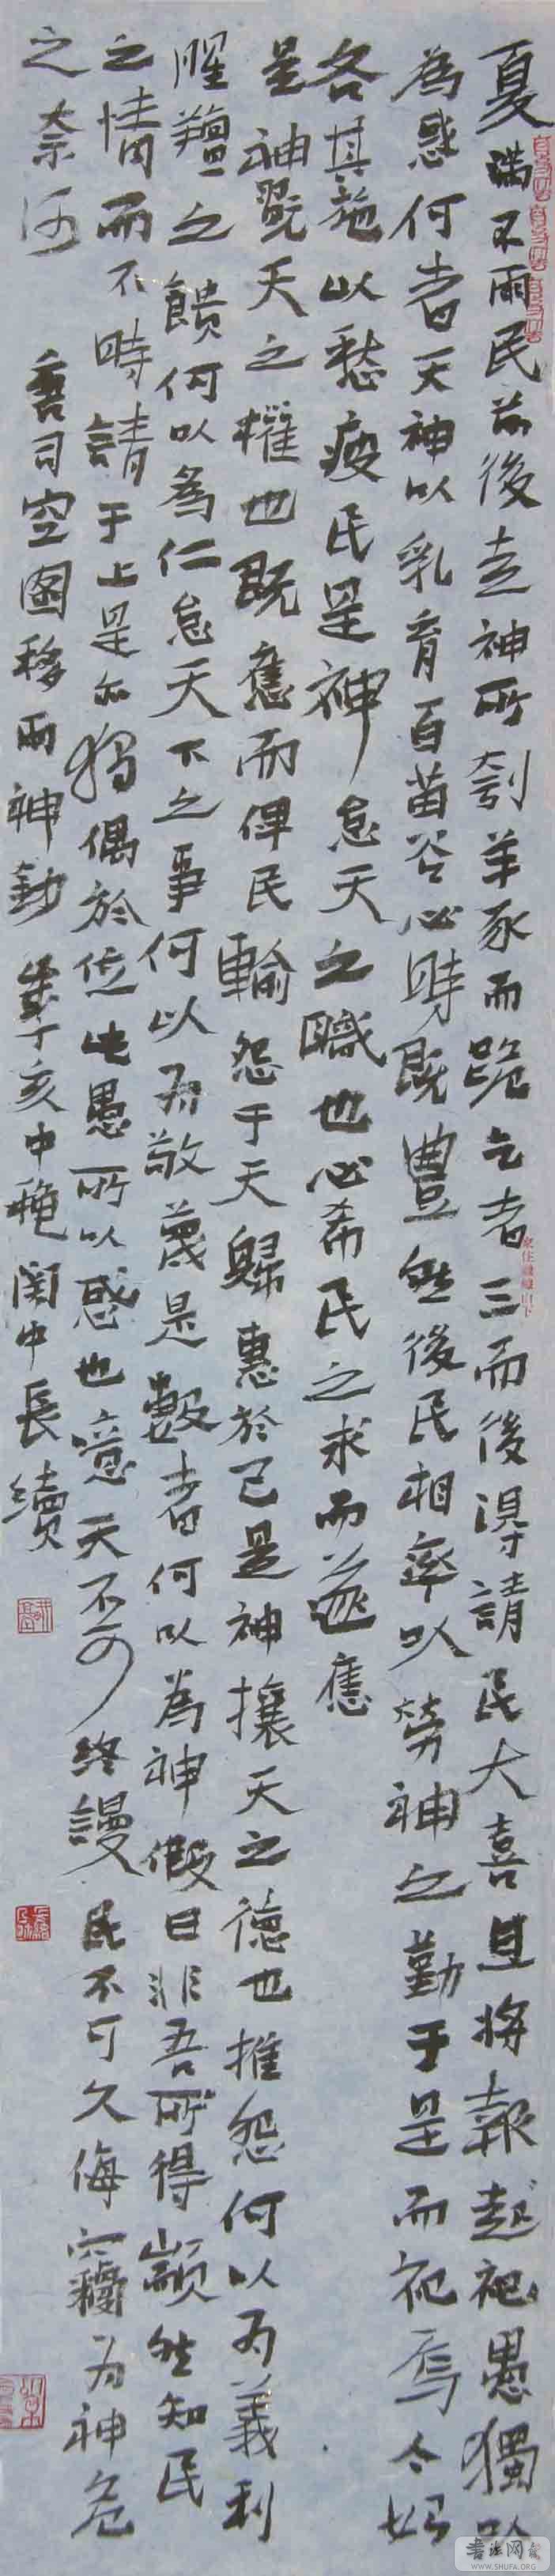 夏滿不雨民前後走神所刳羊豕而跪乞者三而後得請民大喜且將報起祀愚獨以
為惑何者天神以乳育百苗谷必時既豐然後民相率以勞神之勤于是而祀焉今始
各其施以愁疲民是神怠天之職也必希民之求而遂應
是神既天之權也既應而俾民輸怨于天歸惠於己是神攘天之德也推怨何以為義利
腥羶之饋何以為仁怠天下之事何以為敬蔑是數者何以為神假曰非吾所得顓然知民
之情而不時請于上是亦獨偶於位此愚所以惑也意天不可終謾民不可久侮竊為神危
之奈何 唐司空圖移雨神勒 歲丁亥中秋關中長續
書法网
WWW.SHUFA.ORG